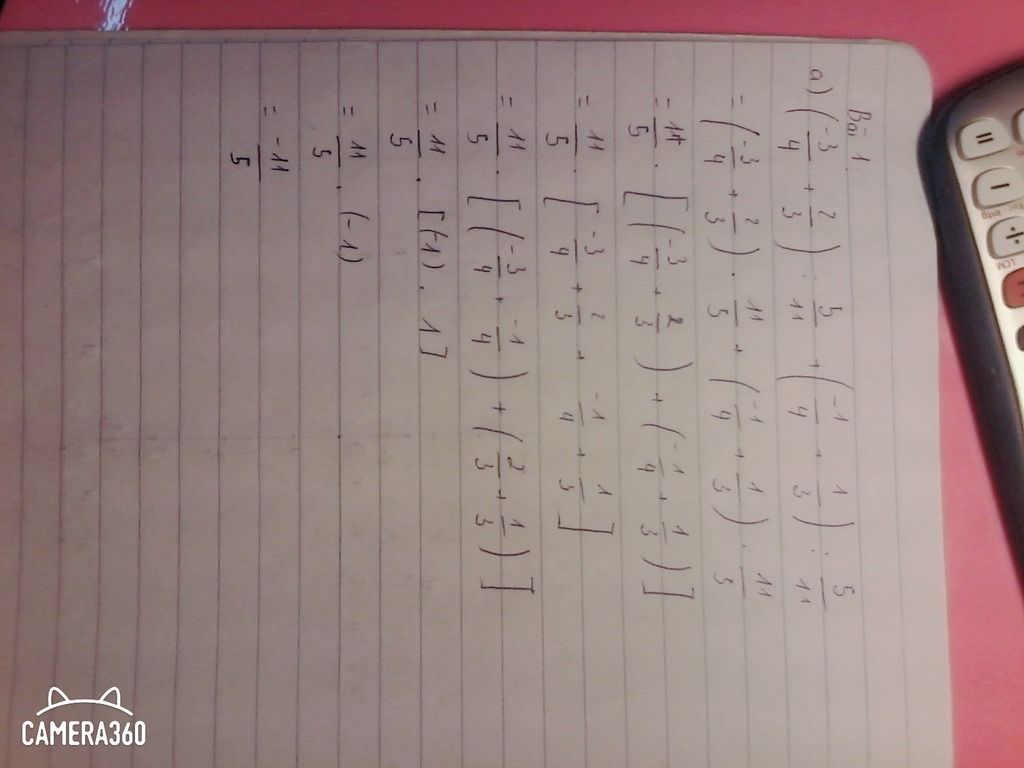 Bài 1:
a) (-3/4 + 2/3) : 5/11 + (-1/4 + 1/3) : 5/11
= (-3/4 + 2/3) . 11/5 + (-1/4 + 1/3) . 11/5
= 11/5 . [(-3/4 + 2/3) + (-1/4 + 1/3)]
= 11/5 . [-3/4 + 2/3 + -1/4 + 1/3]
= 11/5 . [(-3/4 + -1/4) + (2/3 + 1/3)]
= 11/5 . [(-1) . 1]
= 11/5 . (-1)
= -11/5
CAMERA360